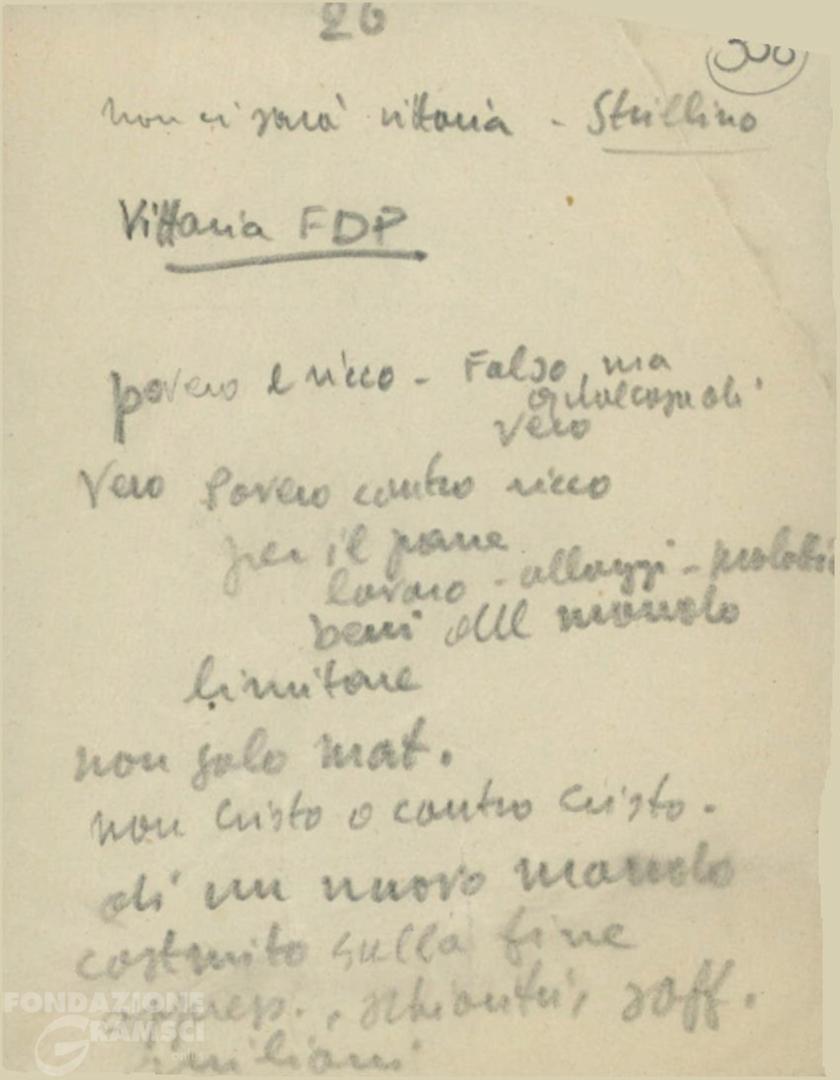 26
non ci sarà vittoria - Strillino
Vittoria FDP
povero e ricco - Falso, ma
qualcosa di
vero
Vero Povero contro ricco
per il pane
lavoro - alloggi -
beni del mondo
limitare
non solo mat.
non Cristo o contro Cristo.
di un nuovo mondo
costruito sulla fine
soff.
FONDAZIONE
GRAMSCI